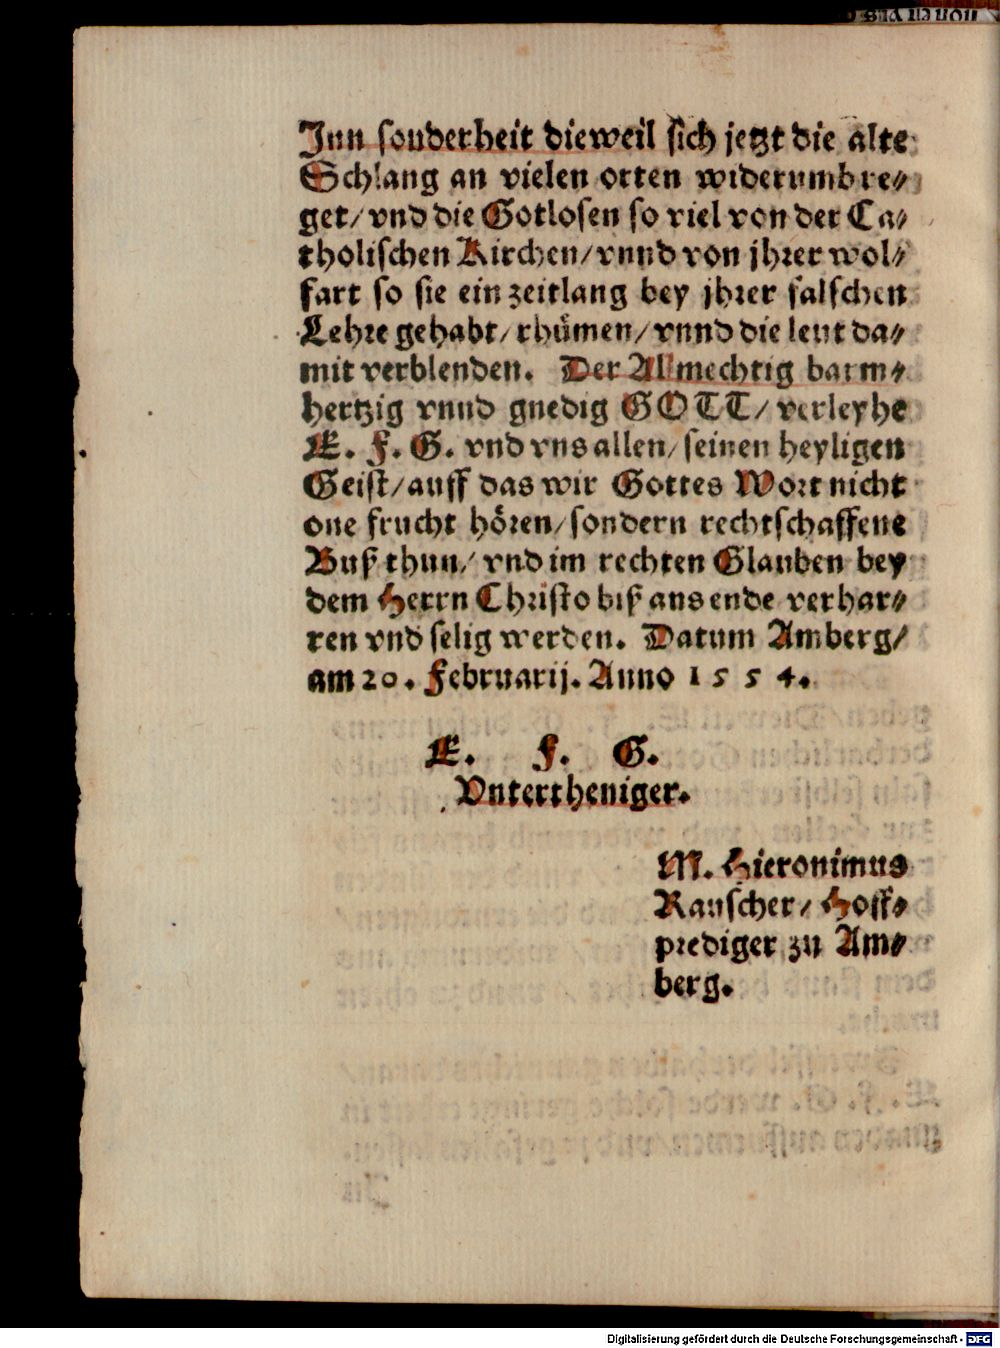 Inn sonderheit dieweil sich jetzt die alte
Schlang an vielen orten widerumb re⸗
get/ vnd die Gotlosen so viel von der Ca⸗
tholischen Kirchen/ vnnd von jhrer wol⸗
fart so sie ein zeitlang bey jhrer falschen
Lehre gehabt/ rhümen/ vnnd die leut da⸗
mit verblenden. Der Allmechtig barm⸗
hertzig vnnd gnedig GOTT/ verleyhe
E. F. G. vnd vns allen/ seinen heyligen
Geist/ auff das wir Gottes Wort nicht
one frucht hören/ sondern rechtschaffene
Buß thun/ vnd im rechten Glauben bey
dem Herrn Christo biß ans ende verhar⸗
ren vnd selig werden. Datum Amberg/
am 20. Februarij. Anno 1554.
E. F. G.
Vntertheniger.
M. Hieronimus
Rauscher/ Hoff⸗
prediger zu Am⸗
berg.
Digitalisierung gefördert durch die Deutsche Forschungsgemeinschaft - DFG